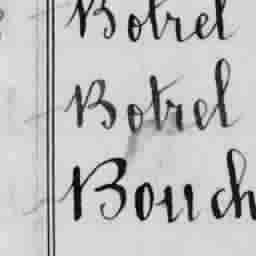 Botrel
Botrel
Bouch